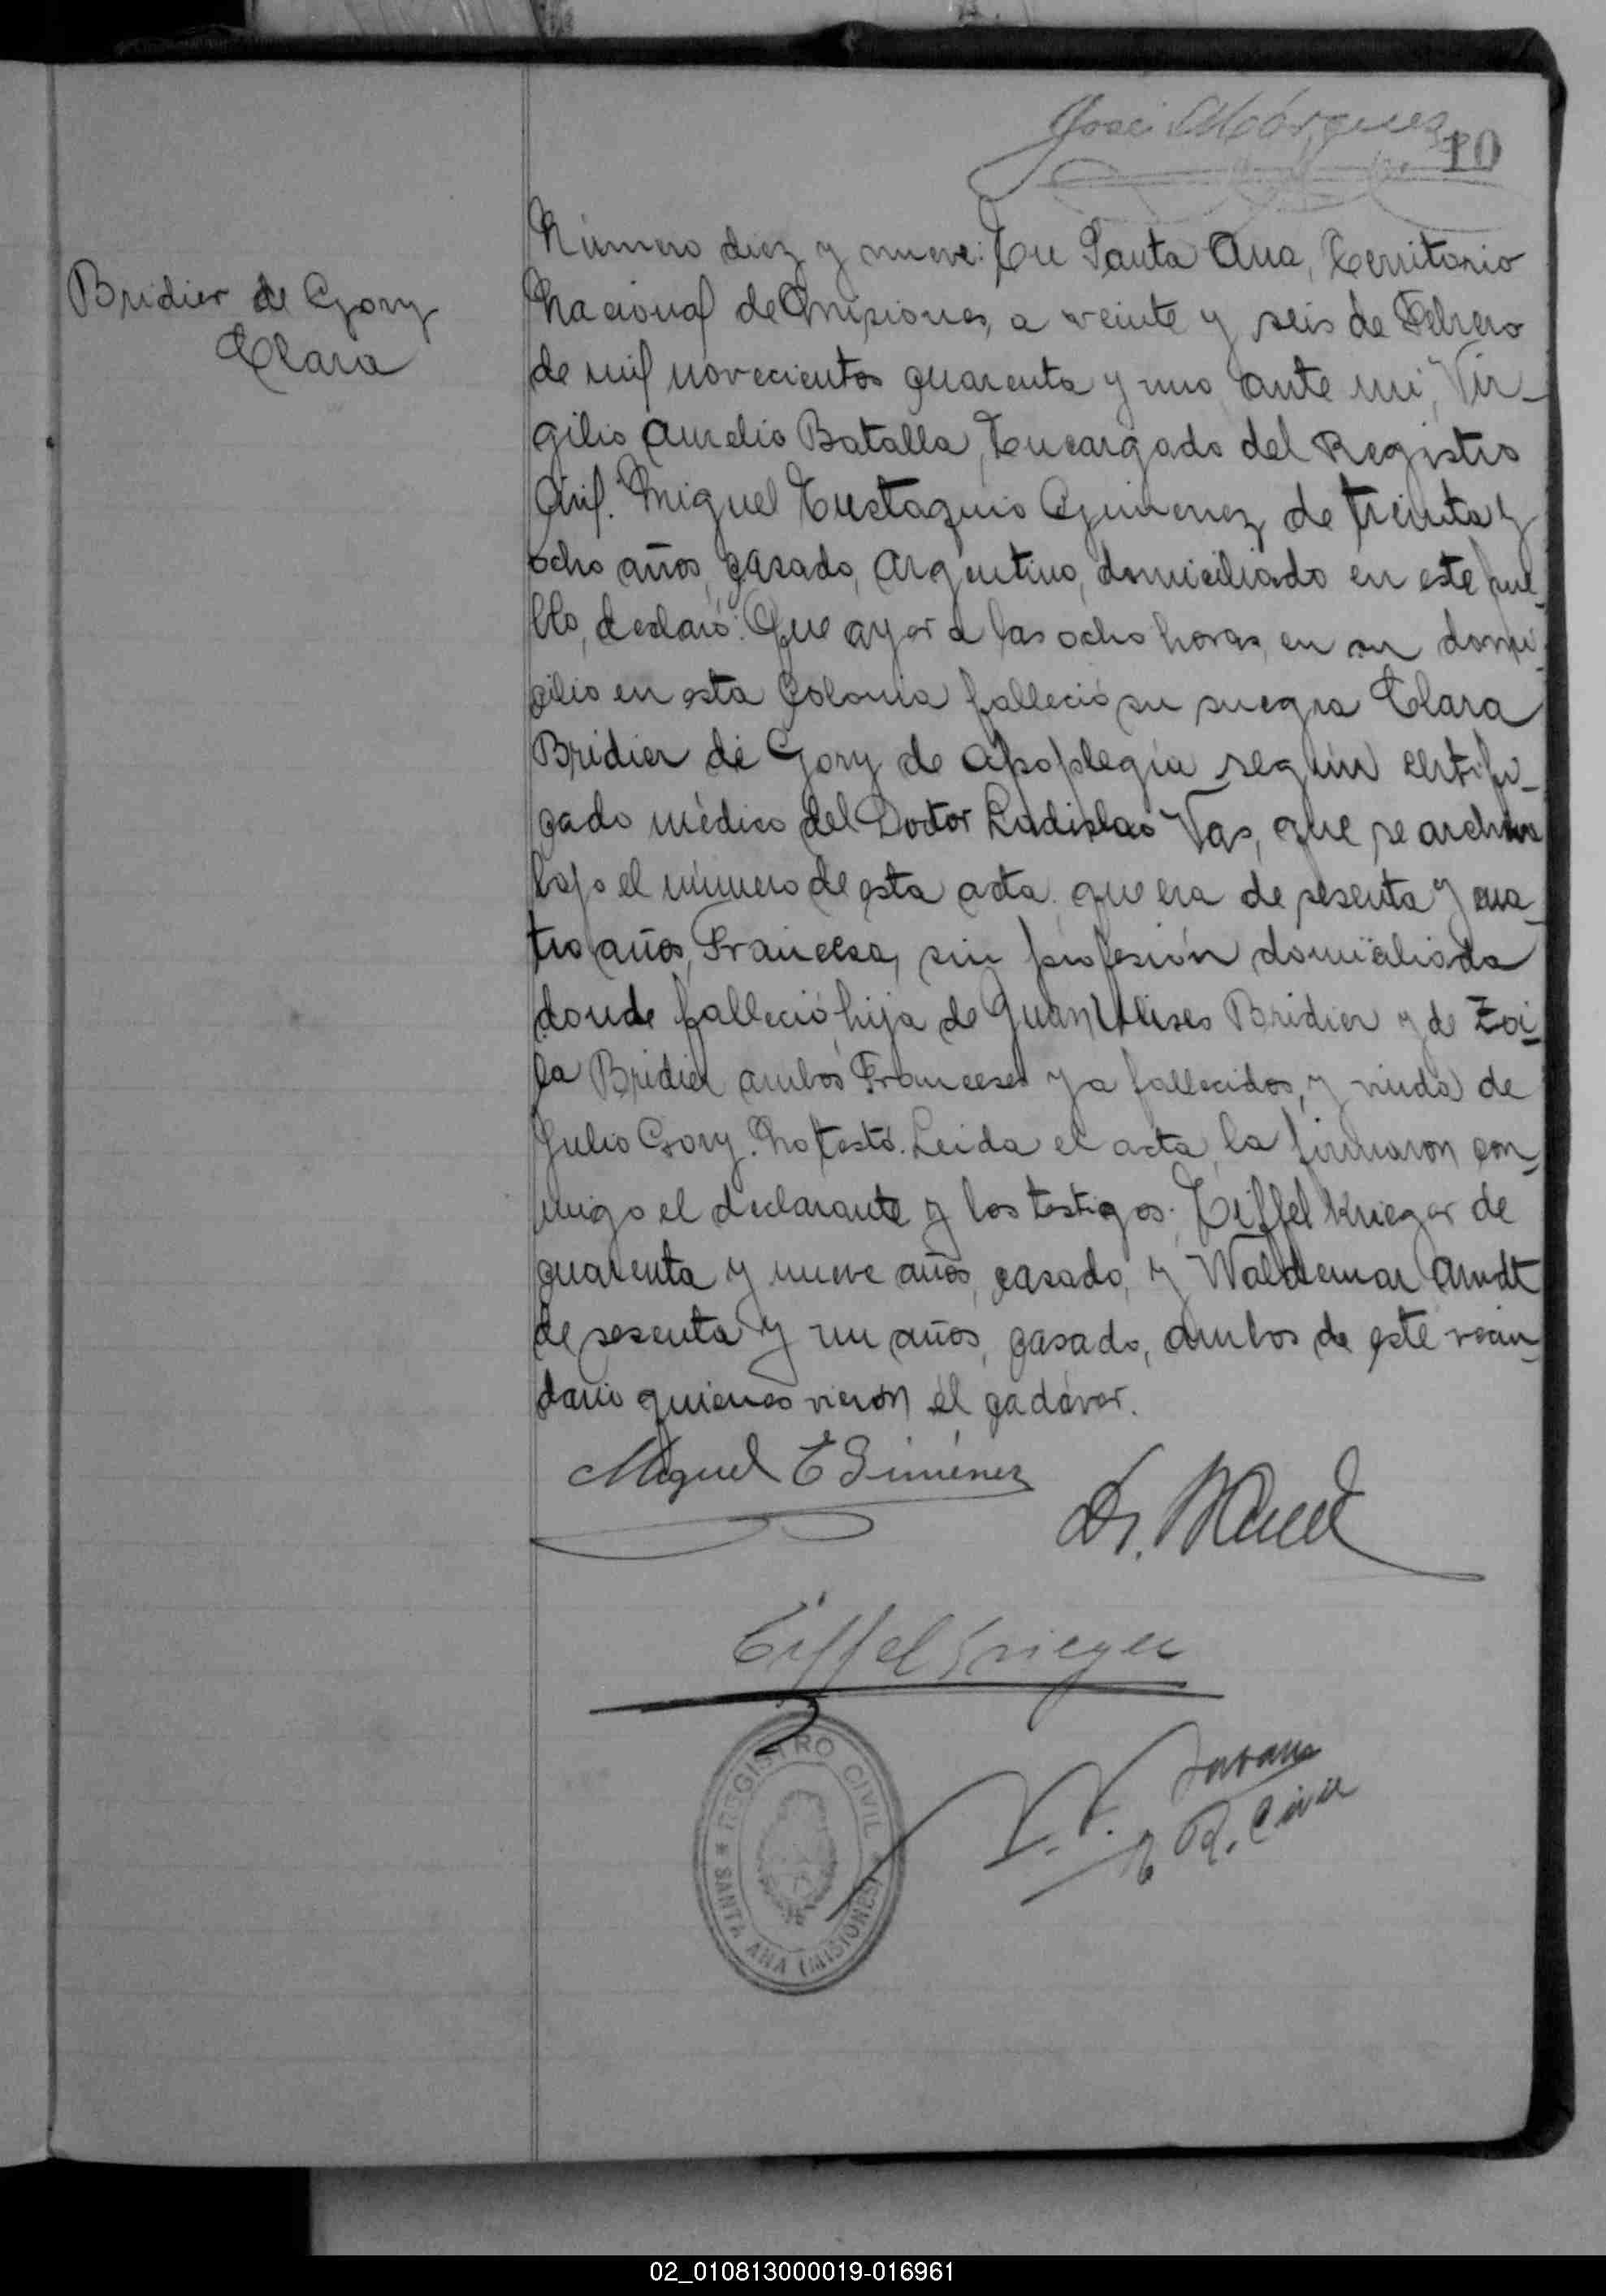 José Márquez
10
Bridier de Gory
Clara
Número diez y nueve: En Santa Ana, Territorio
Nacional de Misiones, a veinte y seis de Febrero
de mil novecientos cuarenta y uno ante mi, Vir-
gilio Aurelio Batalla, Encargado del Registro
Civil. Miguel Eustaquio Gimenez de treinta y
ocho años, casado, Argentino, domiciliado en este pue-
blo, declaró: Que ayer a las ocho horas, en su domi-
cilio en esta Colonia falleció su suegra Clara
Bridier de Gory de apoplegía según certifi-
cado médico del Doctor Ladislao Vas, que se archiva
bajo el número de esta acta. que era de sesenta y cua-
tro años, Francesa, sin profesión domiciliada
donde falleció, hija de Juan Ulises Bridier y de Zoi-
la Bridier ambos Franceses ya fallecidos, y viuda de
Julio Gory. No testó. Leida el acta, la firmaron con-
migo el declarante y los testigos: Eiffel Krieger de
cuarenta y nueve años, casado, y Waldemar Arndt
de sesenta y un años, casado, ambos de este vecin-
dario quienes vieron el cadáver.
Miguel E Giménez
Dr.
Eiffel Krieger
E R. Civil
REGISTRO CIVIL
SANTA ANA (MISIONES)
02_010813000019-016961